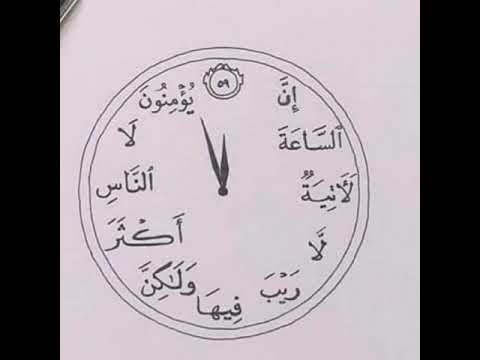 إِنَّ
ٱلسَّاعَةَ
لَـَٔاتِيَةٌ
لَّا
رَيْبَ
فِيهَا
وَلَٰكِنَّ
أَكْثَرَ
ٱلنَّاسِ
لَا
يُؤْمِنُونَ
٥٩